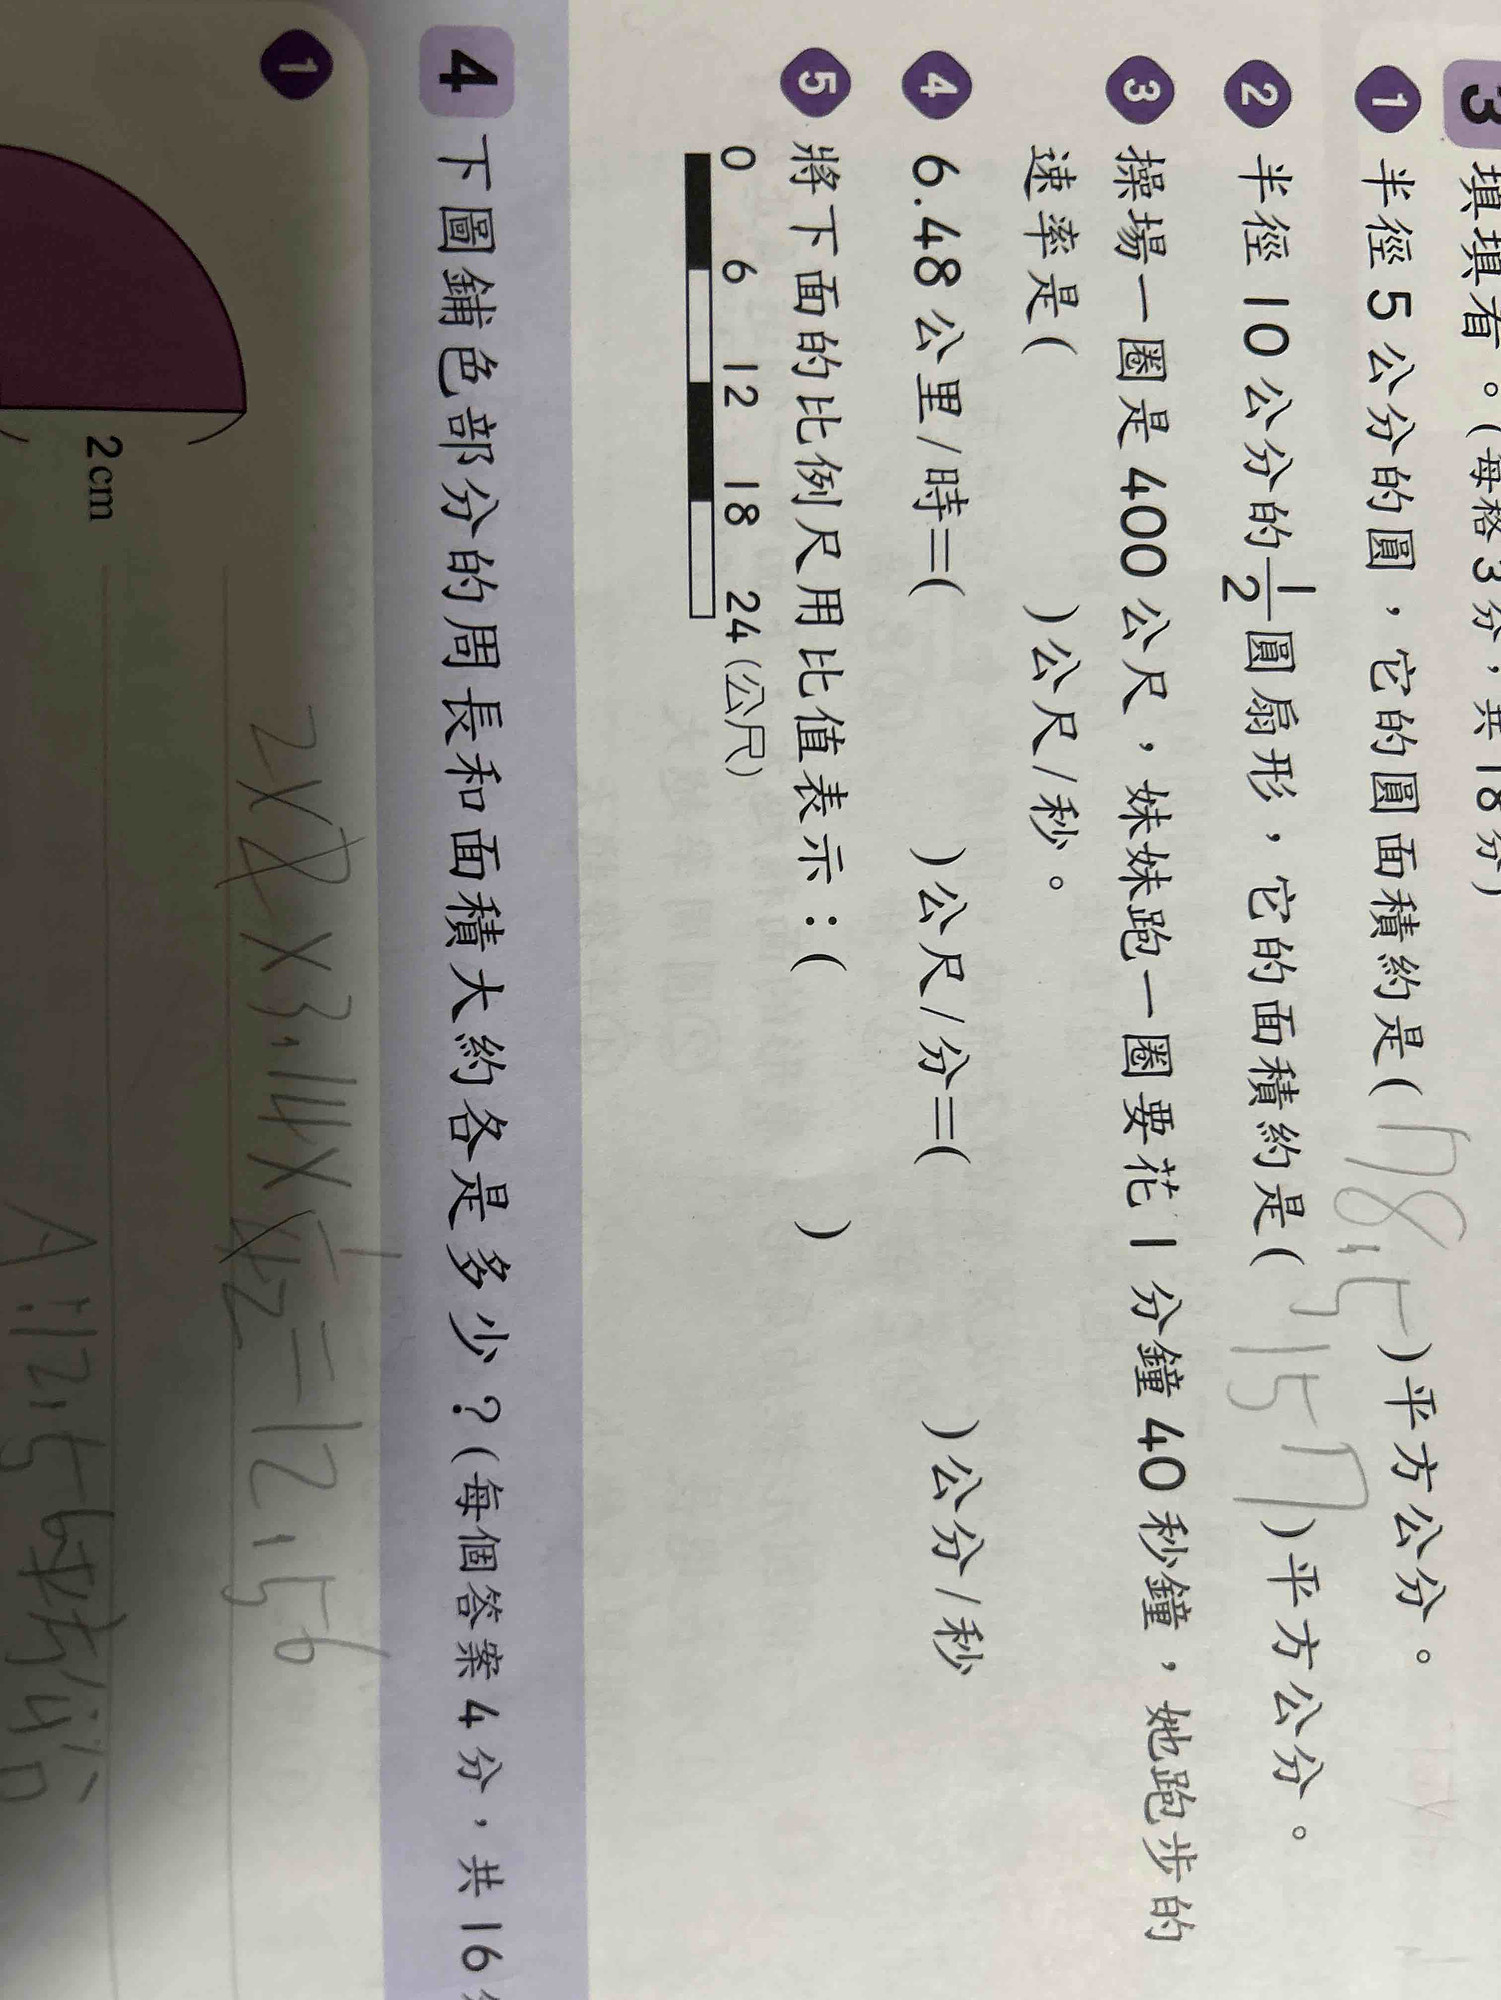 3 填填看。(每格3分，共18分)
1 半徑5公分的圓，它的圓面積約是( 78.5 )平方公分。
2 半徑10公分的1/2圓扇形，它的面積約是( 157 )平方公分。
3 操場一圈是400公尺，妹妹跑一圈要花1分鐘40秒鐘，她跑步的
速率是( )公尺/秒。
4 6.48公里/時=( )公尺/分=( )公分/秒
5 將下面的比例尺用比值表示：( )
0 6 12 18 24(公尺)
4 下圖鋪色部分的周長和面積大約各是多少？(每個答案4分，共16
1
2cm
=12.56
A:12.56